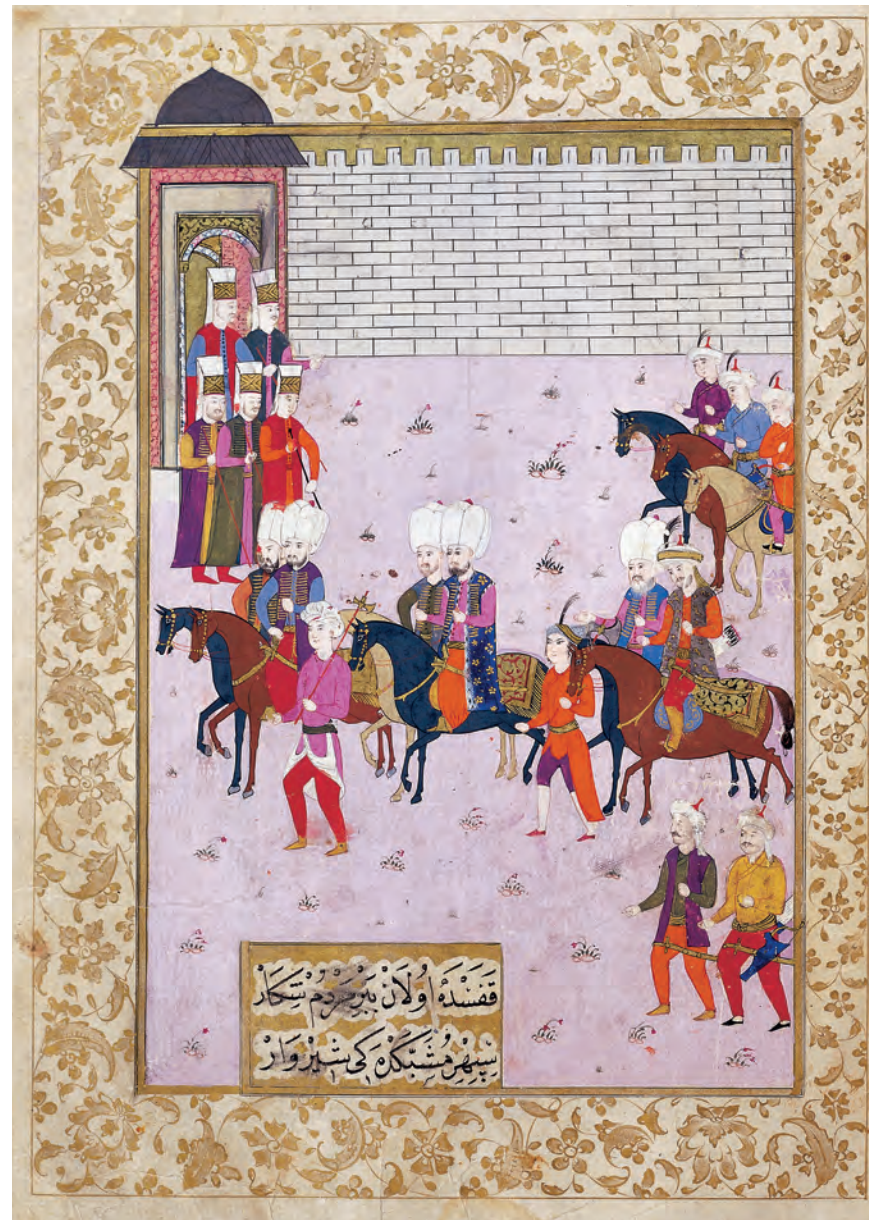 قَفَسْدَهْ اُولَانْ بَبْرِ مَرْدُمْ شِكَارْ
سِپِهْرِ مُشَبَّكْدَهْ كِى شِيْرْوَارْ